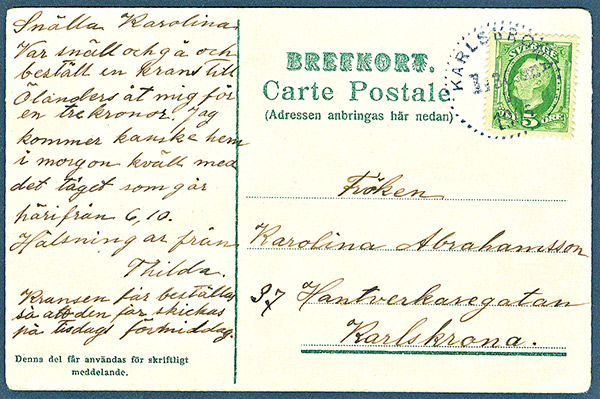 Snälla Karolina
Var snäll och gå och
beställ en krans till
Öländers åt mig för
en tre kronor. Jag
kommer kanske hem
i morgon kväll med
det tåget som går
härifrån 6,10.
Hälsningar från
Thilda.
Kransen får beställas
så att den får skickas
på tisdags förmiddag.
Denna del får användas för skriftligt
meddelande.
BREFKORT.
Carte Postale
(Adressen anbringas här nedan)
KARLSKRONA
5 ÖRE
Fröken
Karolina Abrahamsson
37 Hantverkaregatan
Karlskrona.